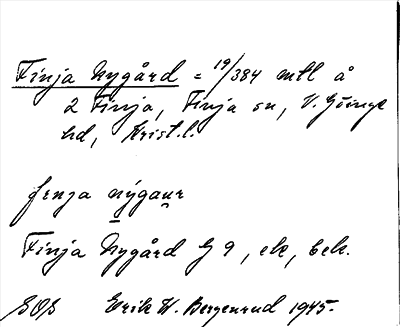 Finja Nygård = 19/384 mtl å
2 Finja, Finja sn, V. Göinge
hd, Krist.l.
fınja nýgaur
Finja Nygård G 9, ek, bek.
Erik W. Bergenrud 1945.